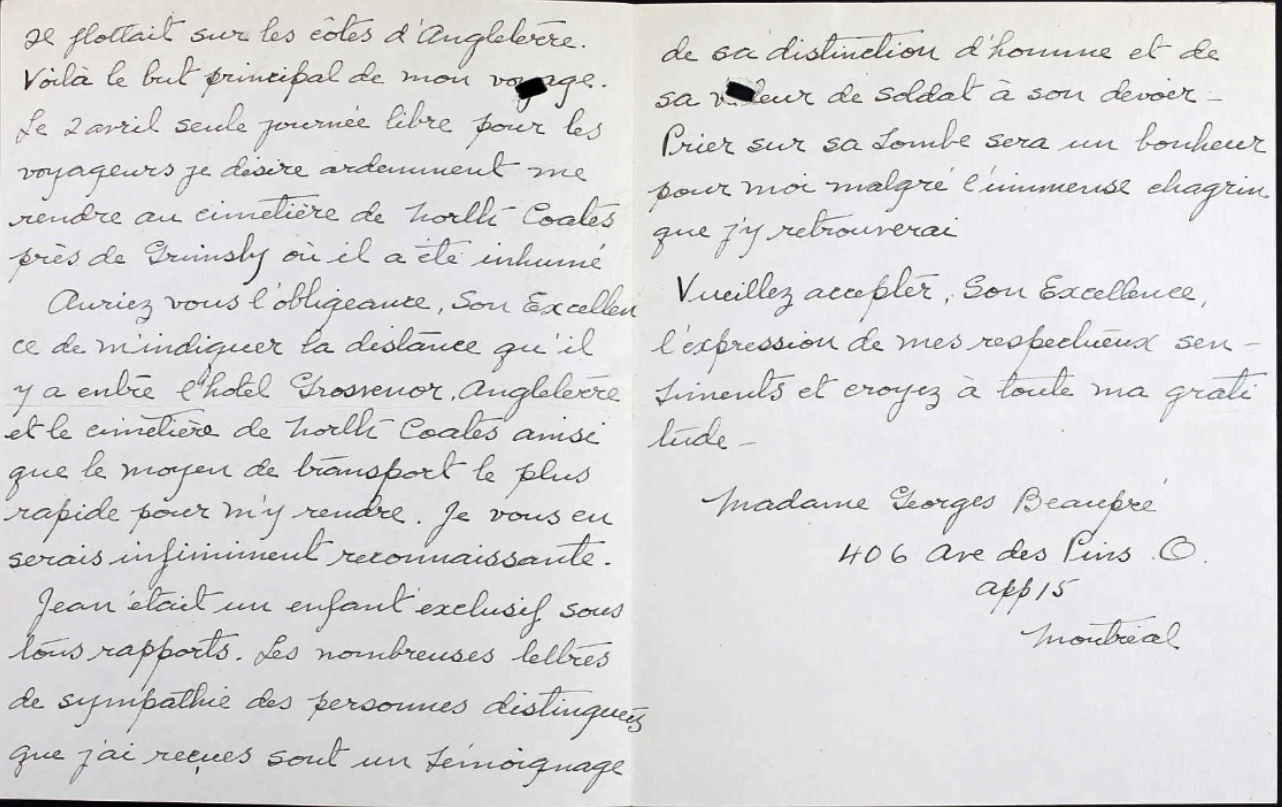 se flottait sur les côtes d'Angleterre.
Voilà le but principal de mon voyage.
Le 2 avril seule journée libre pour les
voyageurs je désire ardemment me
rendre au cimetière de North Coates
près de Grimsby où il a été inhumé
Auriez vous l'obligeance, Son Excellen
ce de m'indiquer la distance qu'il
y a entre l'hotel Grosvenor, Angleterre
et le cimetière de North Coates ainsi
que le moyen de transport le plus
rapide pour m'y rendre. Je vous en
serais infiniment reconnaissante.
Jean était un enfant exclusif sous
tous rapports. Les nombreuses lettres
de sympathie des personnes distinguées
que j'ai reçues sont un témoignage
de sa distinction d'homme et de
sa valeur de soldat à son devoir -
Prier sur sa tombe sera un bonheur
pour moi malgré l'immense chagrin
que j'y retrouverai
Vueillez accepter, Son Excellence,
l'expression de mes respectueux sen-
timents et croyez à toute ma grati
tude -
Madame Georges Beaupré
406 Ave des Pins . O.
app 15
Montréal